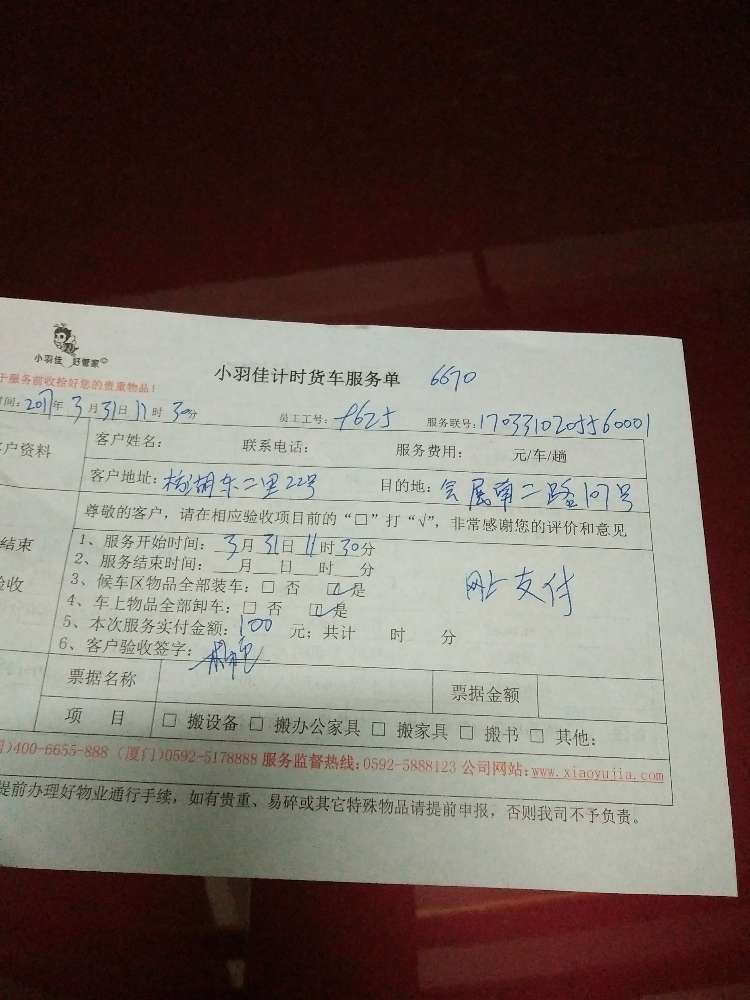 小羽佳 好管家
小羽佳计时货车服务单 6670
于服务前收检好您的贵重物品！
时间：2017年3月31日11时30分 员工工号：9625 服务联号：1703310205560001
客户资料 客户姓名： 联系电话： 服务费用： 元/车/趟
客户地址：槟湖东二里22号 目的地：会展南二路107号
尊敬的客户，请在相应验收项目前的“□”打“√”，非常感谢您的评价和意见
结束
验收
1、服务开始时间：3月31日11时30分
2、服务结束时间：__月__日__时__分
3、候车区物品全部装车：□ 否 ☑ 是
网上支付
4、车上物品全部卸车：□ 否 ☑ 是
5、本次服务实付金额：100 元；共计 时 分
6、客户验收签字：
票据名称 票据金额
项 目 □ 搬设备 □ 搬办公家具 □ 搬家具 □ 搬书 □ 其他：
)400-6655-888 (厦门)0592-5178888 服务监督热线:0592-5888123 公司网站:www.xiaoyujia.com
提前办理好物业通行手续，如有贵重、易碎或其它特殊物品请提前申报，否则我司不予负责。